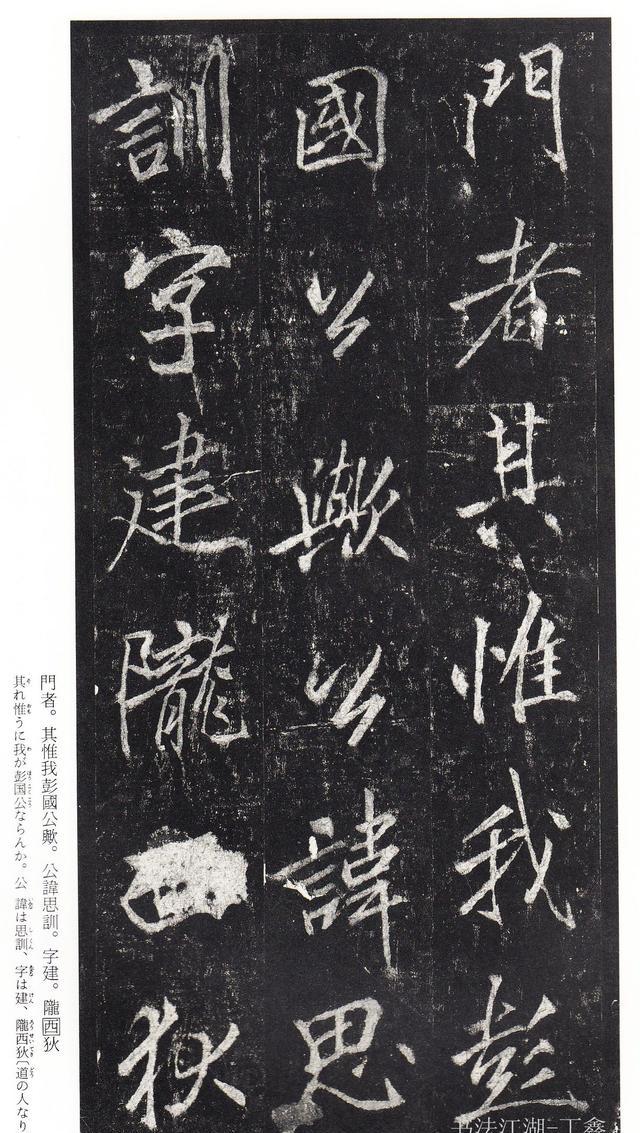 門者其惟我彭
國公歟公諱思
訓字建隴西狄
門者。其惟我彭國公歟。公諱思訓。字建。隴西狄
其れ惟うに我が彭国公ならんか。公 諱は思訓、字は建、隴西狄〔道の人なり
书法江湖-丁鑫